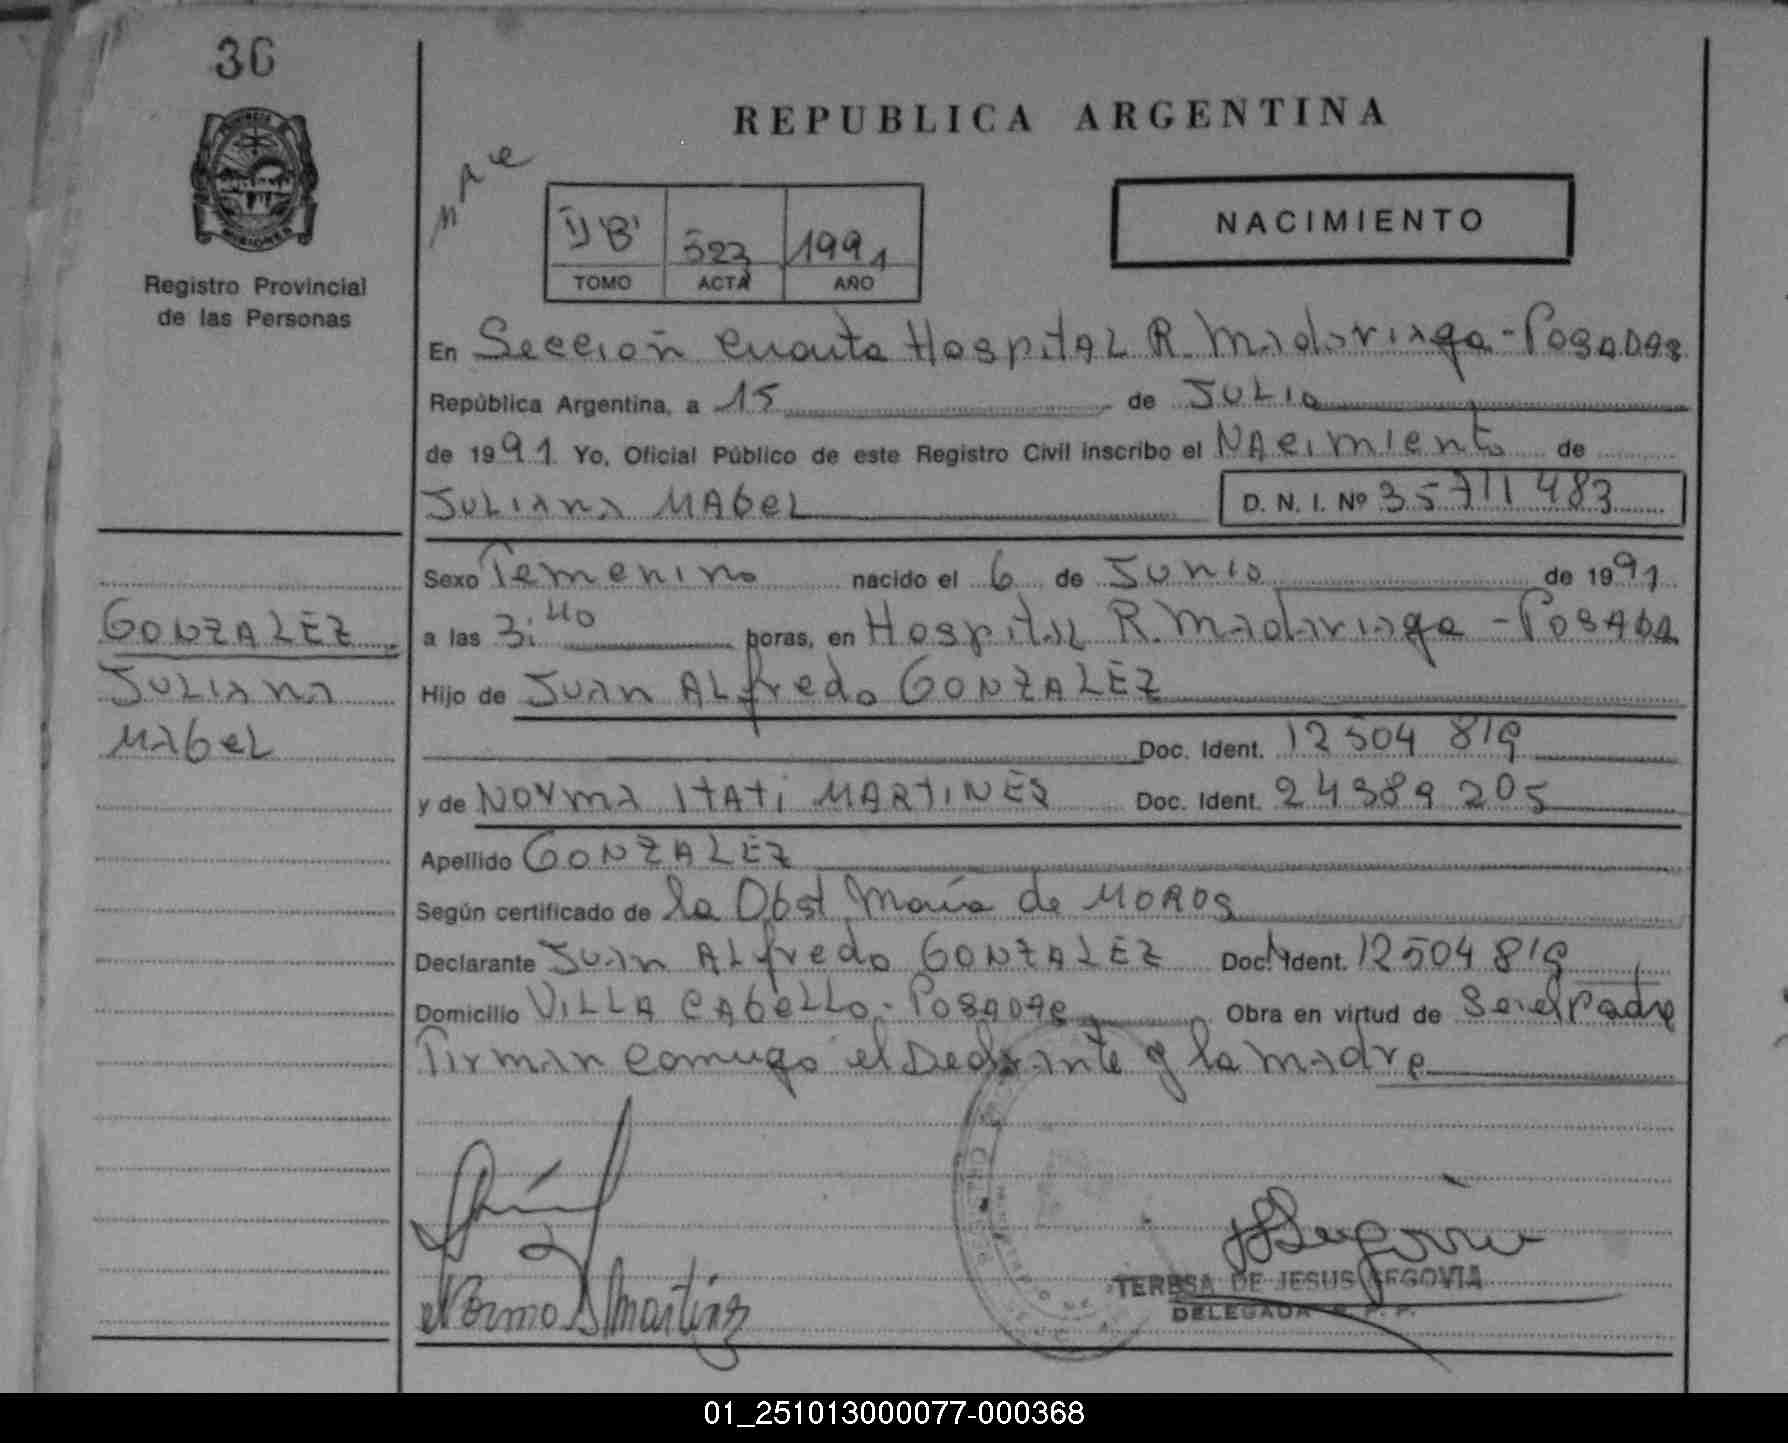 36
REPUBLICA ARGENTINA
PROVINCIA
MISIONES
Registro Provincial
de las Personas
NACIMIENTO
"B" 523 1991
TOMO ACTA AÑO
En Sección Cuarta Hospital R. Madariaga - Posadas
República Argentina, a 15 de Julio
de 1991. Yo, Oficial Público de este Registro Civil inscribo el Nacimiento de
Juliana Mabel D. N. I. Nº 35711483
Sexo Femenino nacido el 6 de Junio de 1991
a las 3:40 horas, en Hospital R. Madariaga - Posadas
Hijo de Juan Alfredo GONZALEZ
Doc. Ident. 12504819
y de Norma Itatí MARTINES Doc. Ident. 24389205
Apellido GONZALEZ
Según certificado de la Obst María de Moros
Declarante Juan Alfredo GONZALEZ Doc. Ident. 12504819
Domicilio Villa Cabello - Posadas Obra en virtud de Ser el Padre
Firman conmigo el Declarante y la madre
GONZALEZ
Juliana
Mabel
Norma I Martinez
TERESA DE JESUS SEGOVIA
DELEGADA R. P. P.
01_251013000077-000368